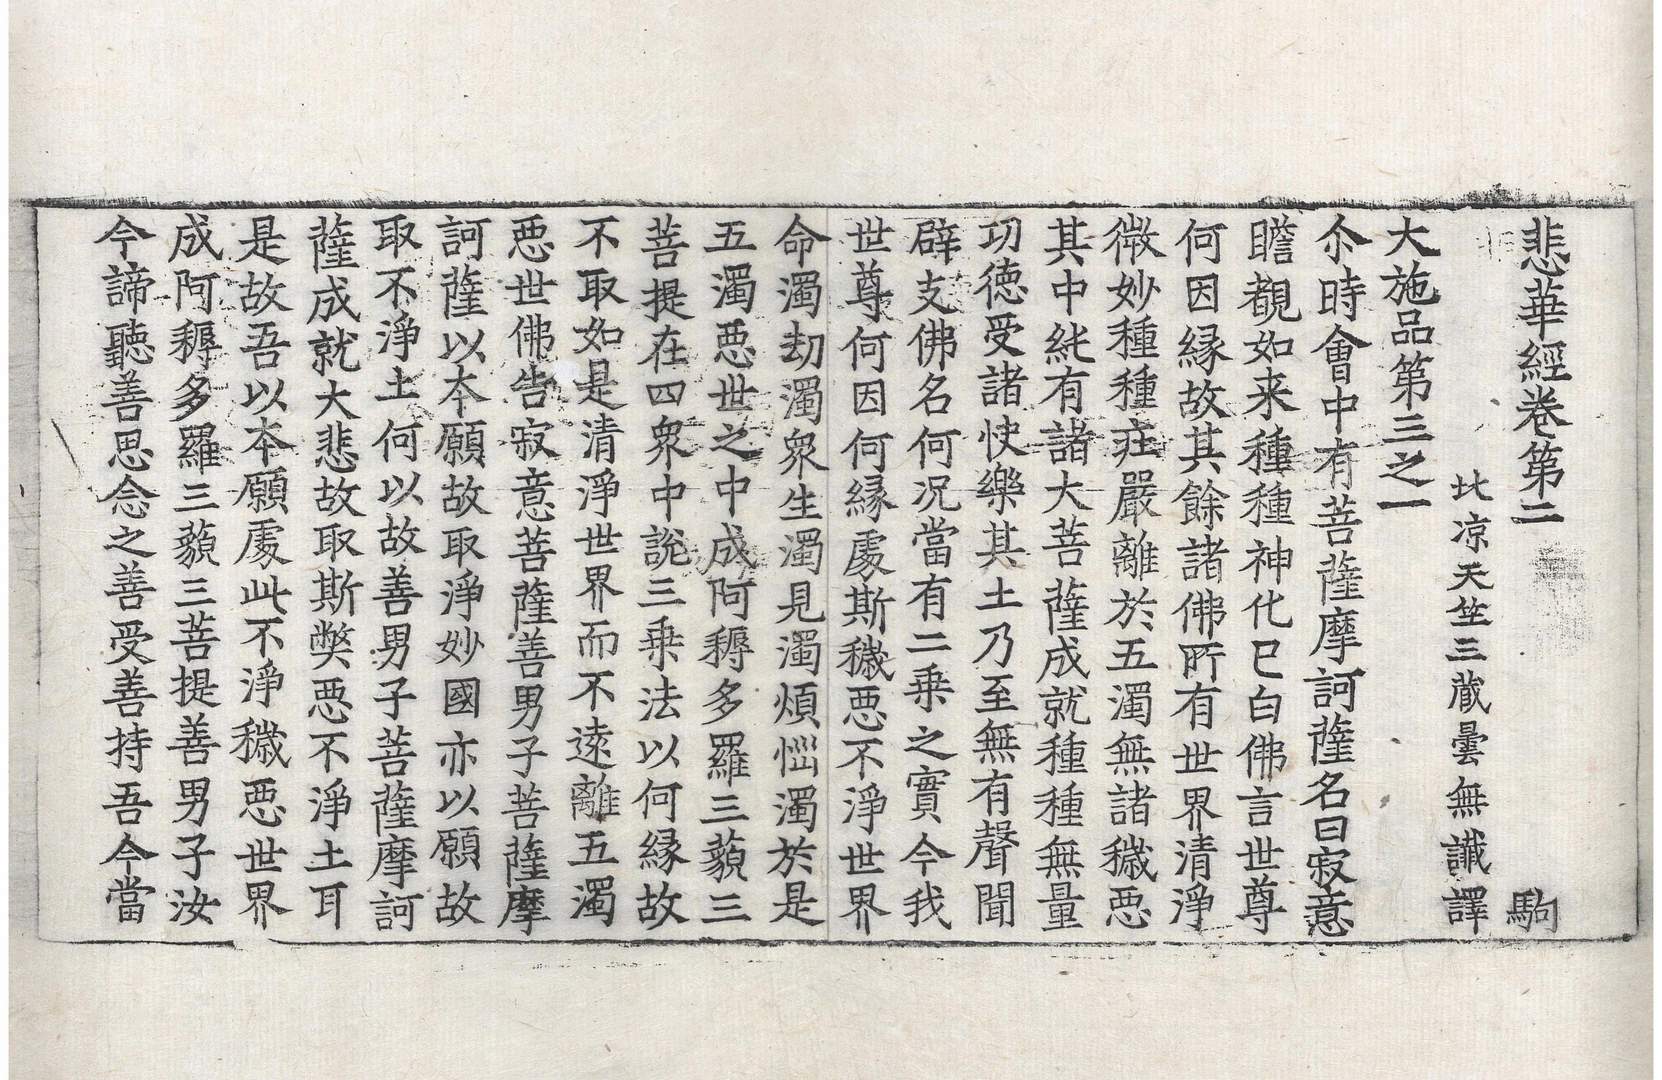 悲華經卷第二 駒
北涼天竺三藏曇無讖譯
大施品第三之一
尒時會中有菩薩摩訶薩名曰寂意
瞻覩如来種種神化已白佛言世尊
何因緣故其餘諸佛所有世界清淨
微妙種種莊嚴離於五濁無諸穢惡
其中純有諸大菩薩成就種種無量
功德受諸快樂其土乃至無有聲聞
辟支佛名何況當有二乗之實今我
世尊何因何緣處斯穢惡不淨世界
命濁劫濁衆生濁見濁煩惱濁於是
五濁惡世之中成阿耨多羅三藐三
菩提在四衆中說三乗法以何緣故
不取如是清淨世界而不遠離五濁
惡世佛告寂意菩薩善男子菩薩摩
訶薩以本願故取淨妙國亦以願故
取不淨土何以故善男子菩薩摩訶
薩成就大悲故取斯弊惡不淨土耳
是故吾以本願處此不淨穢惡世界
成阿耨多羅三藐三菩提善男子汝
今諦聽善思念之善受善持吾今當